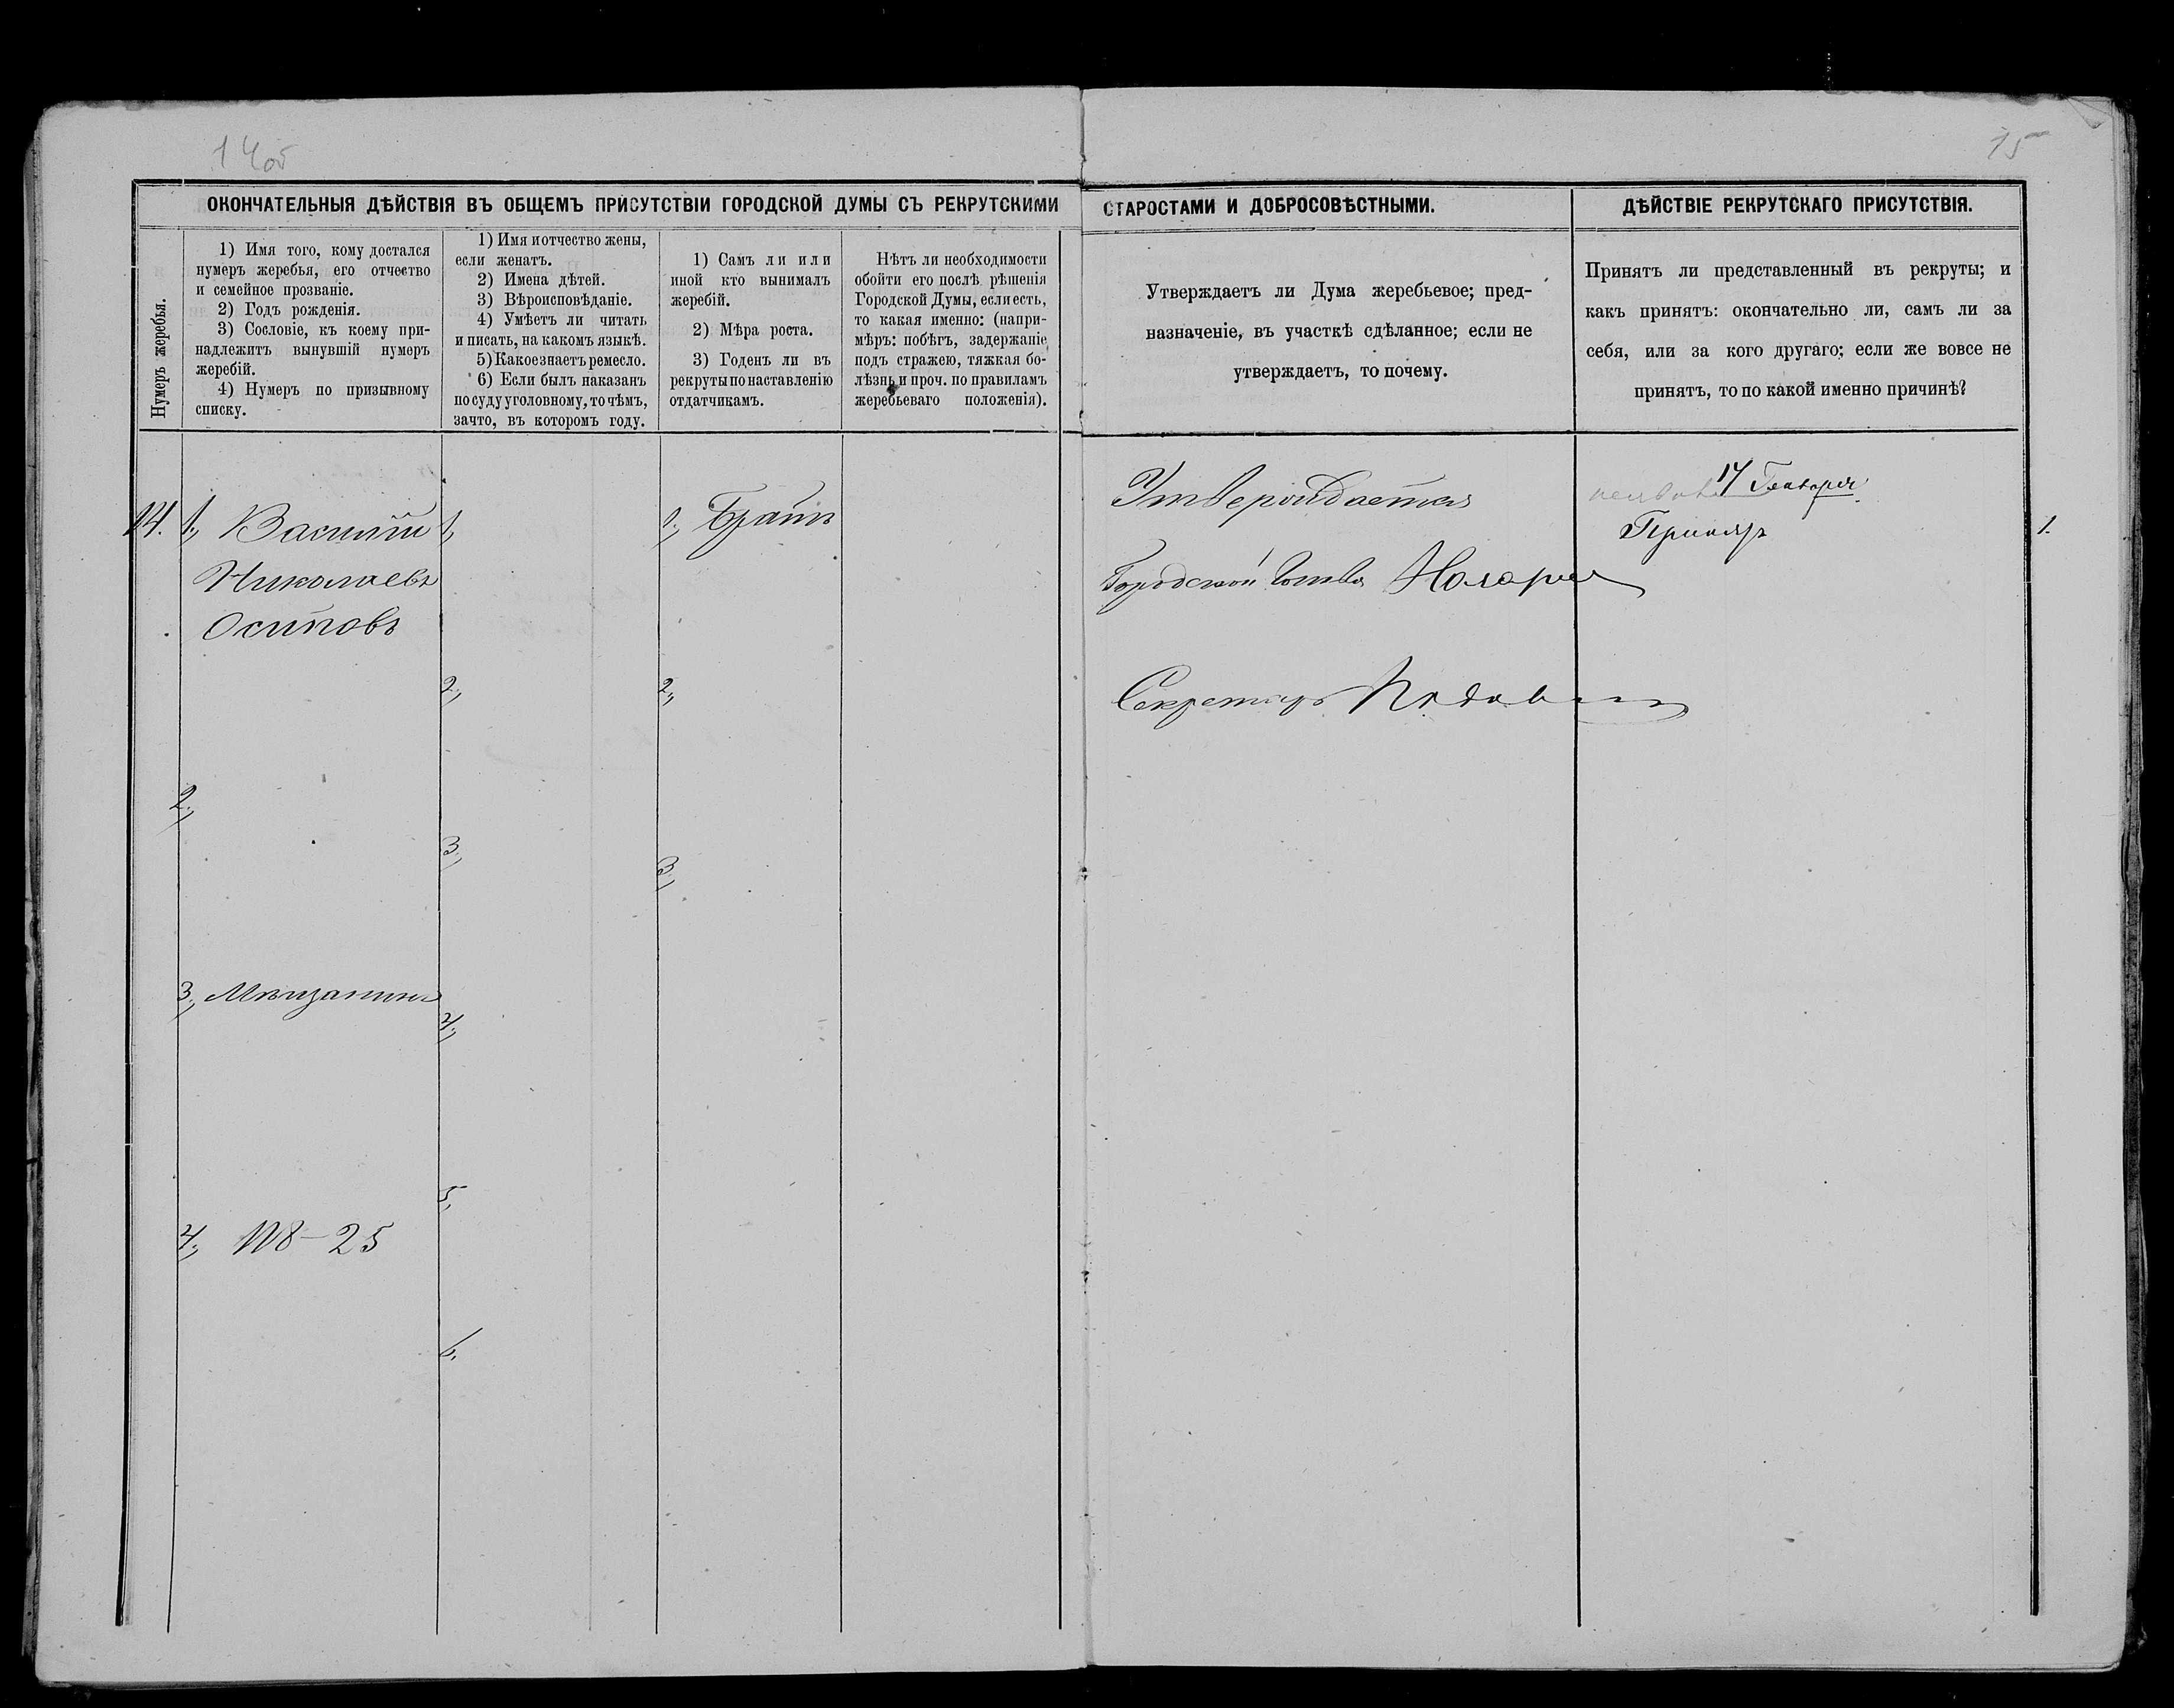 14об
15
ОКОНЧАТЕЛЬНЫЯ ДѢЙСТВІЯ ВЪ ОБЩЕМЪ ПРИСУТСТВІИ ГОРОДСКОЙ ДУМЫ СЪ РЕКРУТСКИМИ СТАРОСТАМИ И ДОБРОСОВѢСТНЫМИ.
ДѢЙСТВІЕ РЕКРУТСКАГО ПРИСУТСТВІЯ.
Нумеръ жеребья.
1) Имя того, кому достался
нумеръ жеребья, его отчество
и семейное прозваніе.
2) Годъ рожденія.
3) Сословіе, къ коему при-
надлежитъ вынувшій нумеръ
жеребій.
4) Нумеръ по призывному
списку.
1) Имя и отчество жены,
если женатъ.
2) Имена дѣтей.
3) Вѣроисповѣданіе.
4) Умѣетъ ли читать
и писать, на какомъ языкѣ.
5) Какое знаетъ ремесло.
6) Если былъ наказанъ
по суду уголовному, то чѣмъ,
за что, въ которомъ году.
1) Самъ ли или
иной кто вынималъ
жеребій.
2) Мѣра роста.
3) Годенъ ли въ
рекруты по наставленію
отдатчикамъ.
Нѣтъ ли необходимости
обойти его послѣ рѣшенія
Городской Думы, если есть,
то какая именно: (напри-
мѣръ: побѣгъ, задержаніе
подъ стражею, тяжкая бо-
лѣзнь и проч. по правиламъ
жеребьеваго положенія).
Утверждаетъ ли Дума жеребьевое; пред-
назначеніе, въ участкѣ сдѣланное; если не
утверждаетъ, то почему.
Принятъ ли представленный въ рекруты; и
какъ принятъ: окончательно ли, самъ ли за
себя, или за кого другаго; если же вовсе не
принятъ, то по какой именно причинѣ?
14.
1., Василій
Николаевъ
Осиповъ
2.,
3., Мѣщанинъ
4., №8-25
1.,
2.,
3.,
4.,
5.,
6.
1., Братъ
2.,
3.,
Утверждается
Городской
Секретарь
17 Генваря
Принятъ
1.